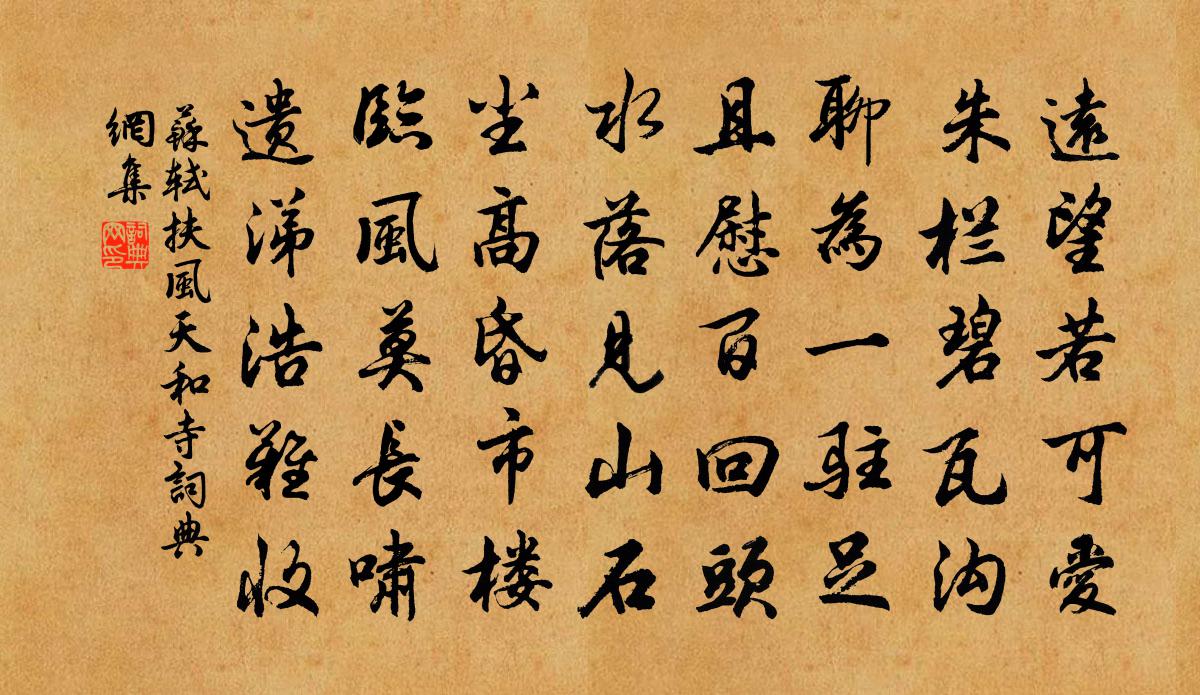 遠望若可愛
朱栏碧瓦沟
聊為一駐足
且慰百回頭
水落見山石
尘高昏市楼
臨風莫長嘯
遗涕浩難收
蘇軾扶風天和寺詞典
網集
詞典
网印